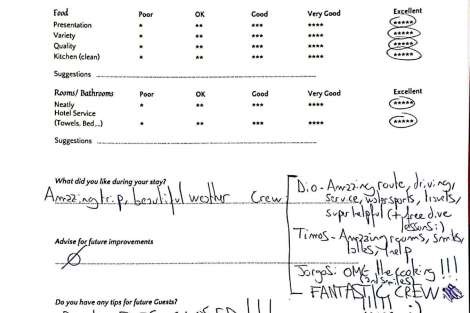 Food Poor OK Good Very Good Excellent
Presentation * ** *** **** *****
Variety * ** *** **** *****
Quality * ** *** **** *****
Kitchen (clean) * ** *** **** *****
Suggestions
Rooms/ Bathrooms Poor OK Good Very Good Excellent
Neatly * ** *** **** *****
Hotel Service
(Towels, Bed...) * ** *** **** *****
Suggestions
What did you like during your stay?
Amazing trip, beautiful weather Crew
Dio - Amazing route, driving,
service, watersports, travels,
super helpful (+ free dive
lessons :)
Timos - Amazing rooms, smiles,
talks, help
Jorgos: OMG the cooking !!!
(and smiles)
FANTASTIC CREW
Advise for future improvements
Do you have any tips for future Guests?